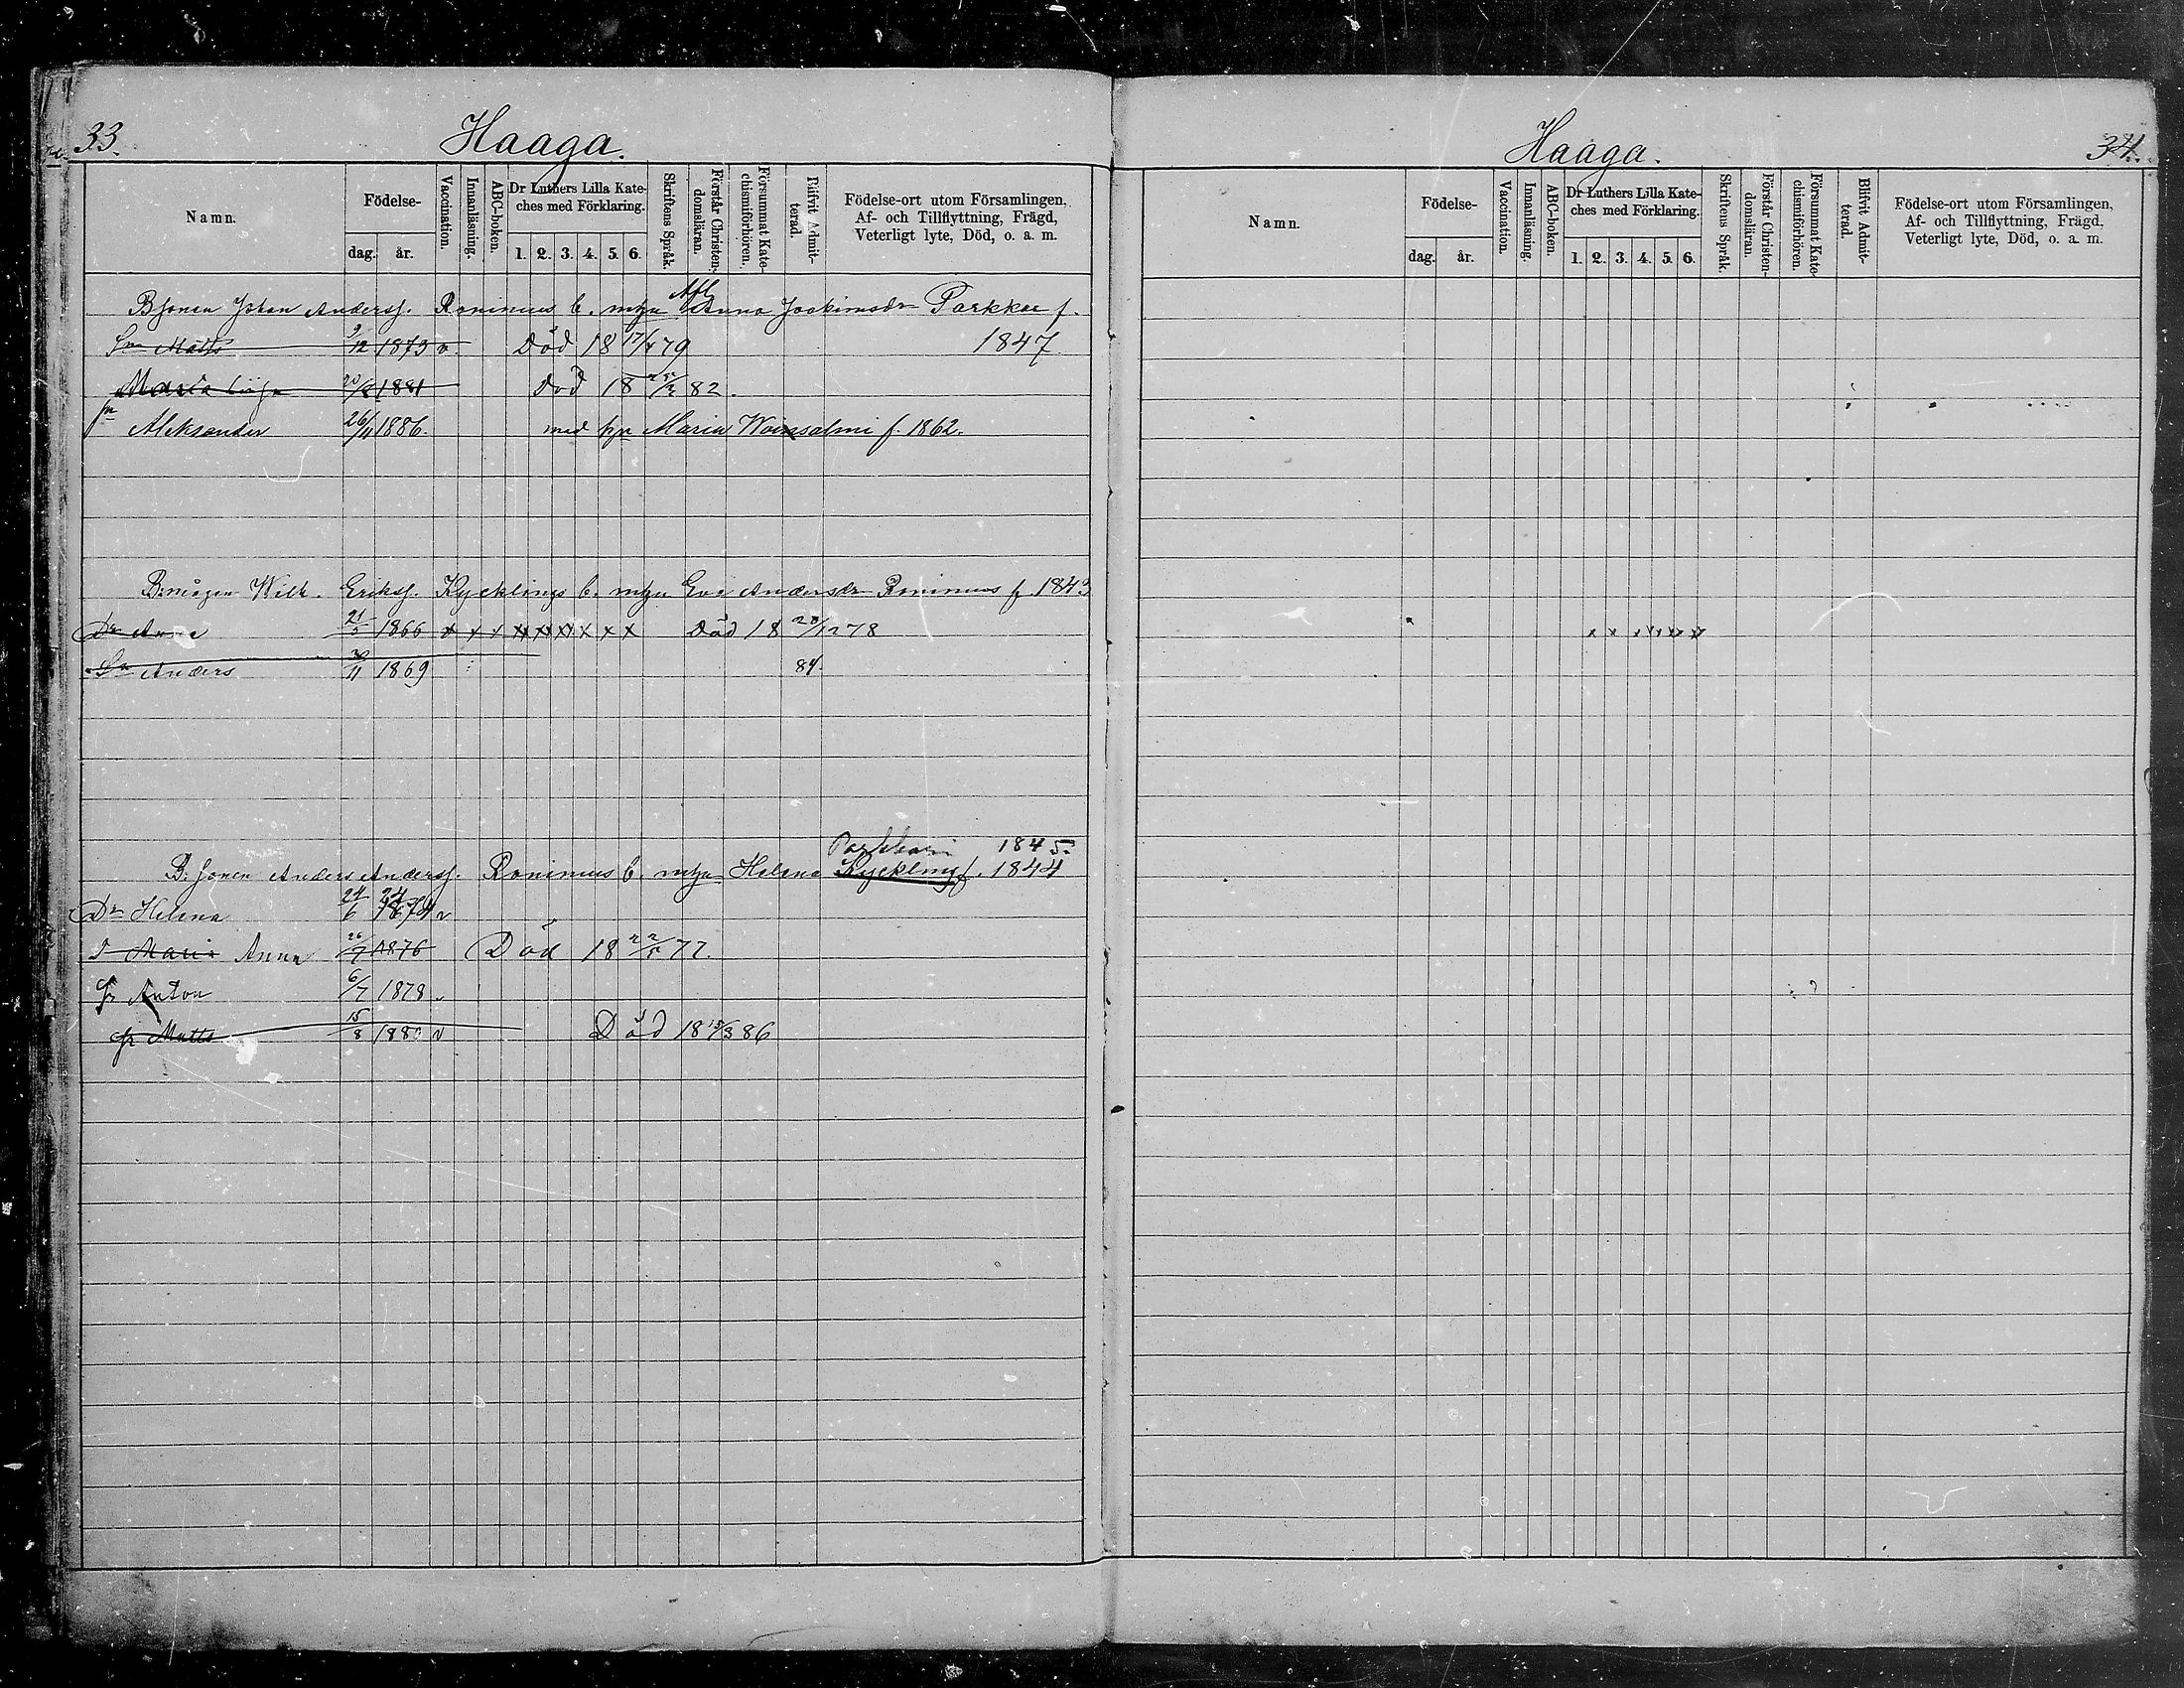 33.
Haaga.
Namn.
Födelse-
dag.
år.
Vaccination.
Innanläsning.
ABC-boken.
Dr Luthers Lilla Kate-
ches med Förklaring.
1. 2. 3. 4. 5. 6.
Skriftens Språk.
Förstår Christen-
domsläran.
Försummat Kate-
chismiförhören.
Blifvit Admit-
terad.
Födelse-ort utom Församlingen,
Af- och Tillflyttning, Frägd,
Veterligt lyte, Död, o. a. m.
Afl
Bsonen Johan Anderss. Ronimus b. mhu Anna Joakimsdr Parkkae f.
Sn Matts 9/12 1873 v. Död 18 17/4 79 1847
Maria 1881 död 18 25/2 82.
sn Aleksander 26/11 1886. med hu Maria Woinsalmi f. 1862.
B:mågen Wilh. Erikss. Kycklings b. mhu Eva Andersdr Ronimus f. 1843
Dr Anna 21/5 1866 x x x x x x x x x Död 18 28/12 78
Sn Anders 30/11 1869 84.
Parkkari 1845.
B:sonen Anders Anderss. Ronimus b. mhu Helena Kyckling f. 1844
Dr Helena 24/6 1874 v
D Maria Anna 26/7 1876 Död 18 22/5 77.
Sn Anton 6/7 1878 v
Sn Matts 15/8 1880 v Död 18 15/3 86
Haaga.
34.
Namn.
Födelse-
dag.
år.
Vaccination.
Innanläsning.
ABC-boken.
Dr Luthers Lilla Kate-
ches med Förklaring.
1. 2. 3. 4. 5. 6.
Skriftens Språk.
Förstår Christen-
domsläran.
Försummat Kate-
chismiförhören.
Blifvit Admit-
terad.
Födelse-ort utom Församlingen,
Af- och Tillflyttning, Frägd,
Veterligt lyte, Död, o. a. m.